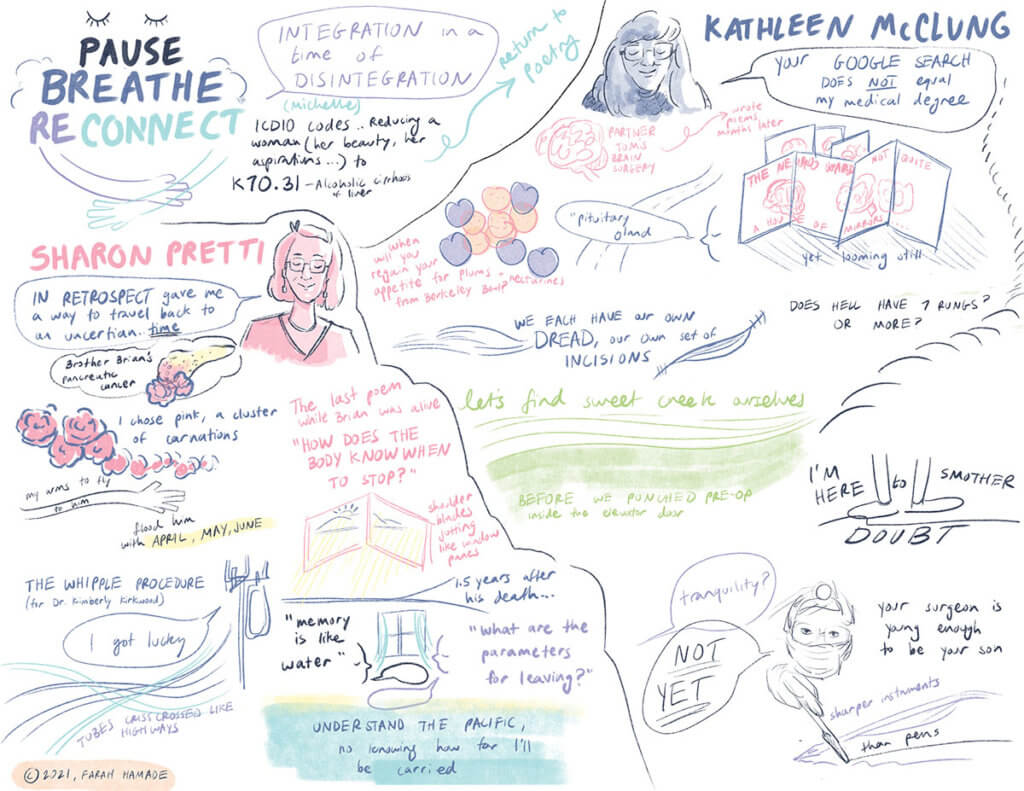 PAUSE
BREATHE
RECONNECT
INTEGRATION in a
time of
DISINTEGRATION
(michelle)
ICD10 codes.. Reducing a
woman (her beauty, her
aspirations...) to
K70.31 - Alcoholic cirrhosis
of liver
return to
poetry
KATHLEEN McCLUNG
your GOOGLE SEARCH
DOES NOT equal
my medical degree
PARTNER
TOM'S
BRAIN
SURGERY
wrote
poems
months later
THE NEURO WARD
NOT QUITE
A HOUSE OF MIRRORS...
yet looming still
"pituitary
gland
when
will you
regain your
appetite for plums
nectarines
from Berkeley Bowl?
WE EACH HAVE OUR OWN
DREAD, OUR OWN SET OF
INCISIONS
DOES HELL HAVE 7 RUNGS?
OR MORE?
let's find sweet creek ourselves
BEFORE WE PUNCHED PRE-OP
inside the elevator door
I'M
HERE to SMOTHER
DOUBT
tranquility?
NOT
YET
your surgeon is
young enough
to be your son
sharper instruments
than pens
SHARON PRETTI
IN RETROSPECT gave me
a way to travel back to
an uncertian.. time
Brother Brian's
pancreatic
cancer
I chose pink, a cluster
of carnations
my arms to fly
to him
flood him
with APRIL, MAY, JUNE
The last poem
while Brian was alive
"HOW DOES THE
BODY KNOW WHEN
TO STOP?"
shoulder
blades
jutting
like window
panes
THE WHIPPLE PROCEDURE
(for Dr. Kimberly Kirkwood)
I got lucky
TUBES CRISSCROSSED LIKE
HIGHWAYS
1.5 years after
his death...
"memory
is like
water"
"what are the
parameters
for leaving?"
UNDERSTAND THE PACIFIC,
no knowing how far I'll
be carried
© 2021, FARAH HAMADE